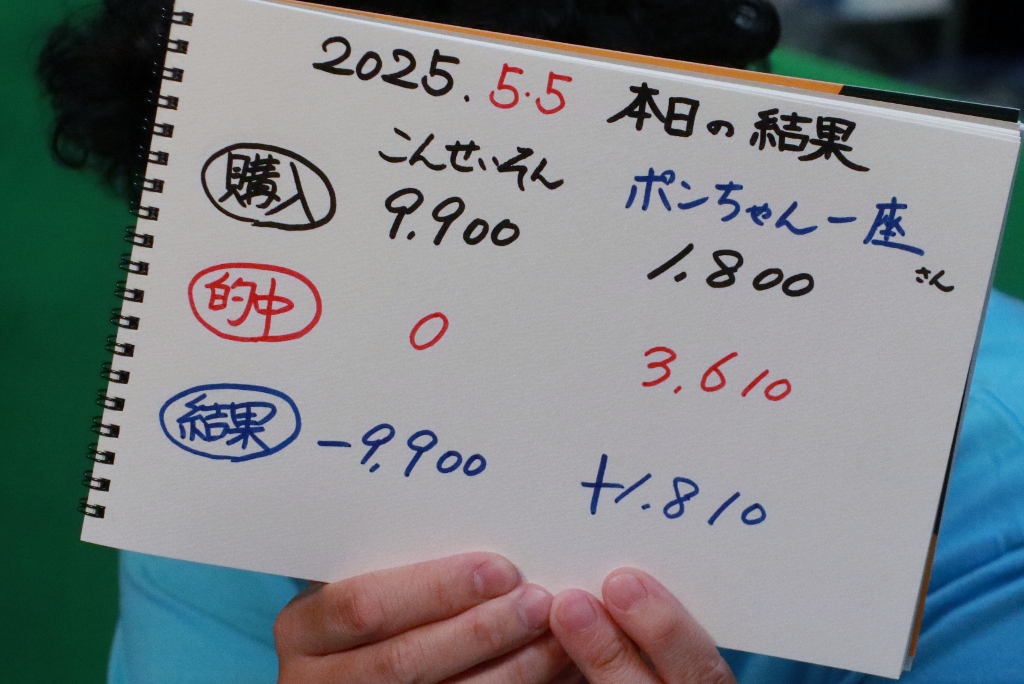 2025.5.5 本日の結果
こんせいそん ポンちゃん一座さん
購入 9.900 1.800
的中 0 3.610
結果 -9.900 +1.810